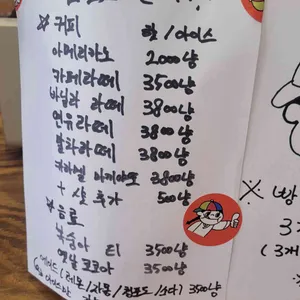 ※ 커피 핫 / 아이스
아메리카노 2000냥
카페라떼 3500냥
바닐라 라떼 3800냥
연유라떼 3800냥
말차라떼 3800냥
카라멜 마키아또 3800냥
+ 샷 추가 500냥
※ 음료
복숭아 티 3500냥
옛날 코코아 3500냥
에이드 / 레몬 / 자몽 / 청포도 / 소다 ) 3500냥
※ 빵
3개
(3개